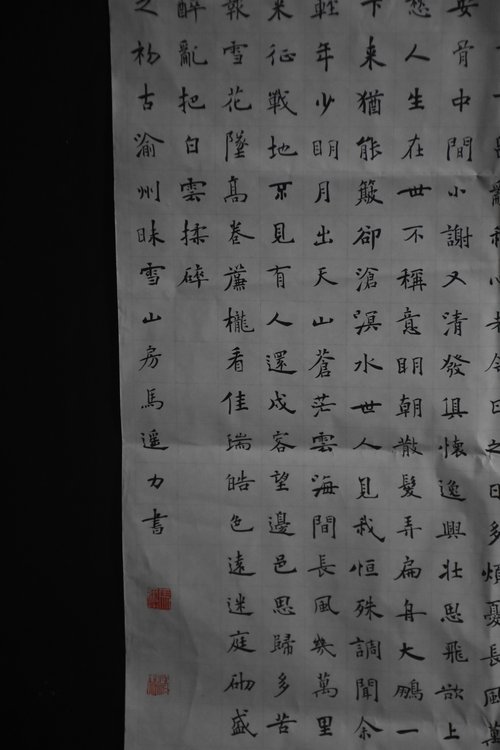 亂我心者今日之日多煩憂長風萬
安骨中間小謝又清發俱懷逸興壯思飛欲上
愁人生在世不稱意明朝散髮弄扁舟大鵬一
下来猶能簸卻滄溟水世人見我恒殊調聞余
輕年少明月出天山蒼茫雲海間長風幾萬里
来征戰地不見有人還戍客望邊邑思歸多苦
報雪花墜高卷簾櫳看佳瑞皓色遠迷庭砌盛
醉亂把白雲揉碎
之初古渝州昧雪山房馬遥力書